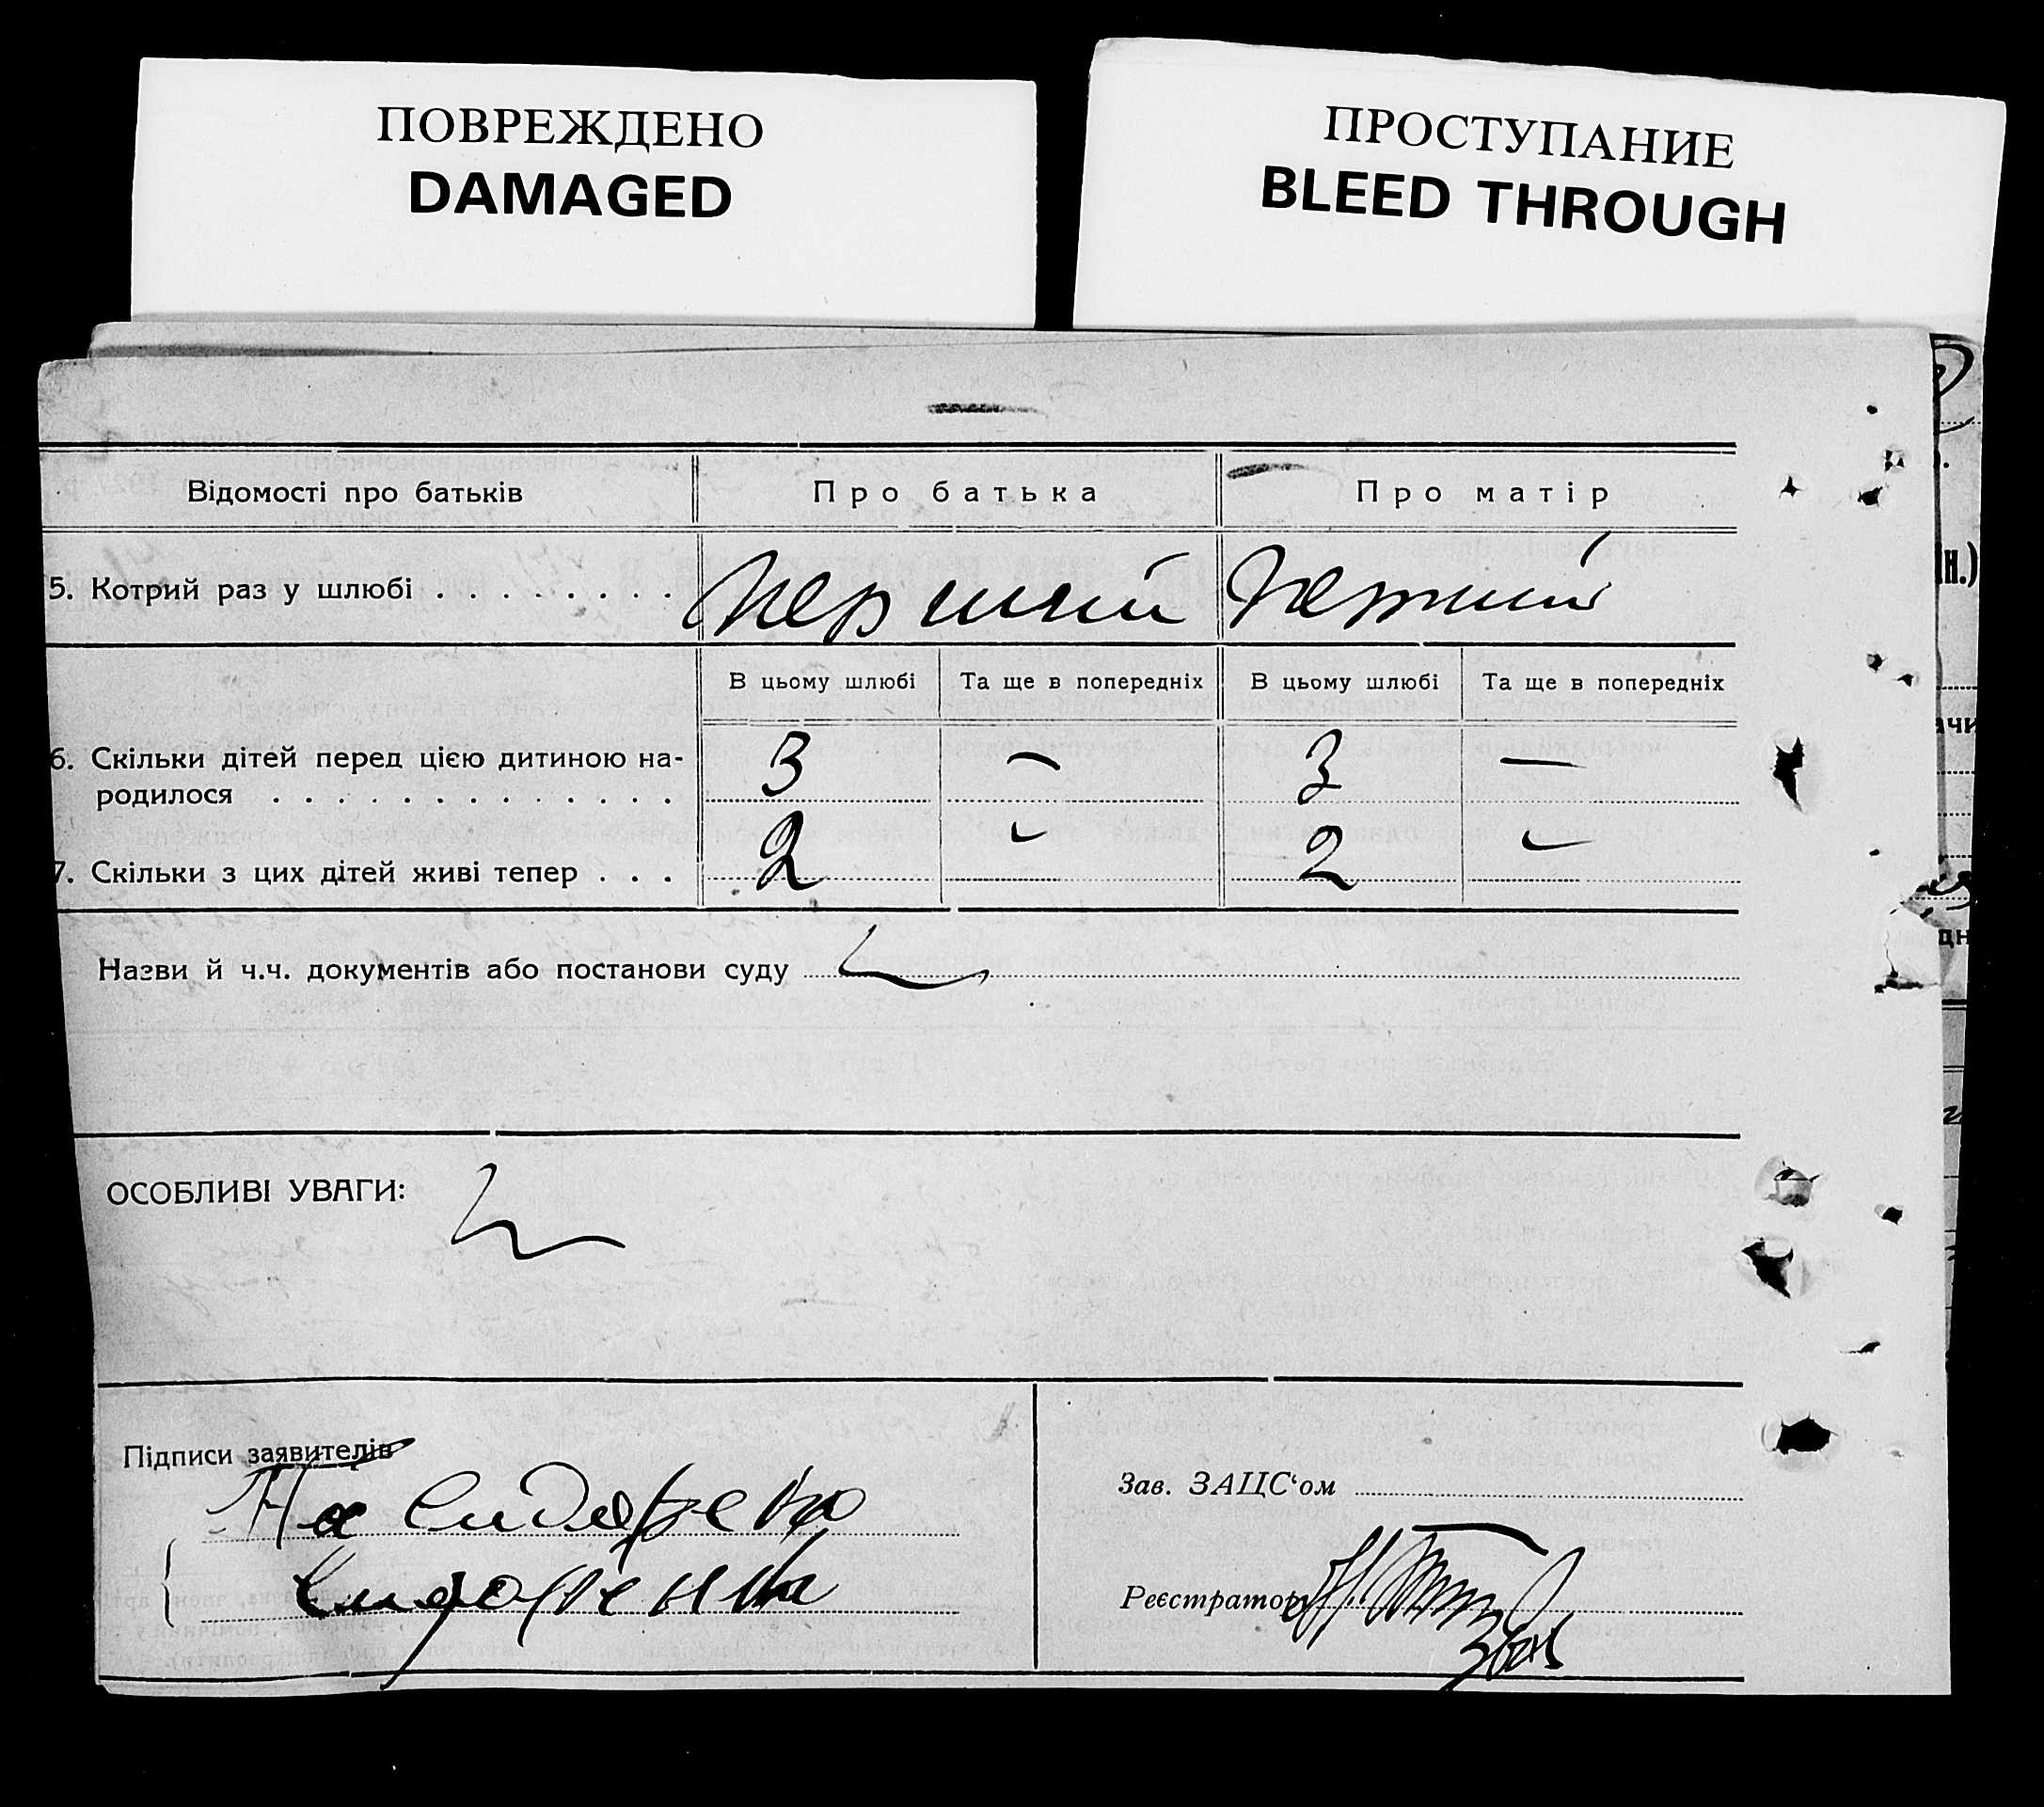 ПОВРЕЖДЕНО
DAMAGED
ПРОСТУПАНИЕ
BLEED THROUGH
Відомості про батьків
Про батька
Про матір
5. Котрий раз у шлюбі . . . . . . . .
перший
перший
В цьому шлюбі
Та ще в попередніх
В цьому шлюбі
Та ще в попередніх
6. Скільки дітей перед цією дитиною на-
родилося . . . . . . . . . . . . .
3
—
3
—
7. Скільки з цих дітей живі тепер . . .
2
2
Назви й ч.ч. документів або постанови суду
ОСОБЛИВІ УВАГИ:
Підписи заявителів
Зав. ЗАЦС‘ом
Реєстратор